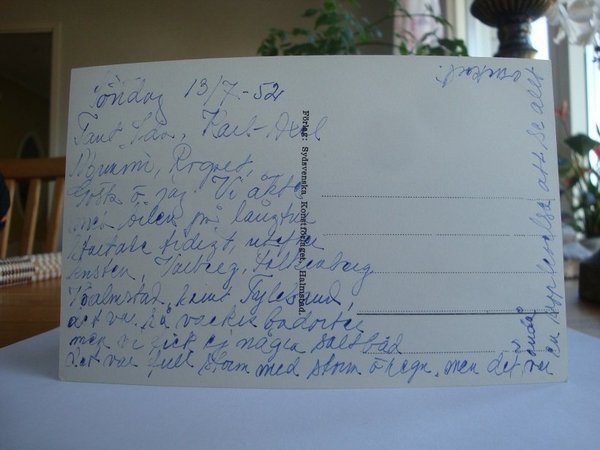 Söndag 13/7-52
Tant Karl-Axel
Rignuet,
Gösta o jag. Vi åkte
med bilen på långtur
startade tidigt, 
Varberg, Falkenberg
Halmstad, Tylesand,
det var så vackra badorter
men vi fick ej några saltbad
det var full storm med storm o regn. men det var
ändå
en upplevelse att se allt
Förlag: Sydsvenska Konstförlaget, Halmstad.